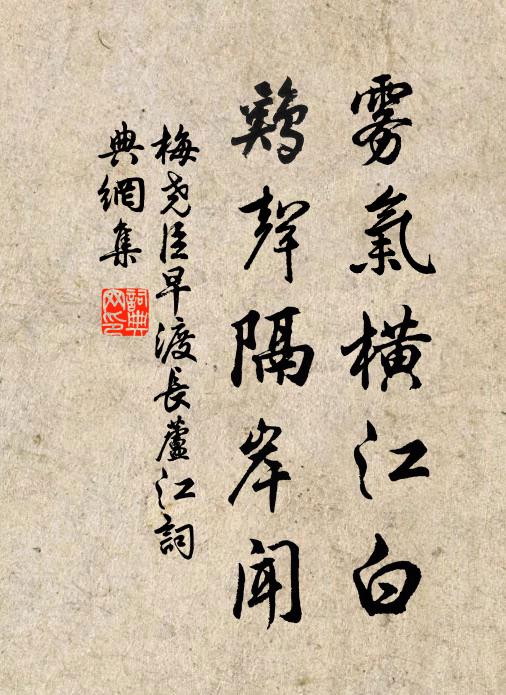 雾氣橫江白
鷄聲隔岸聞
梅尧臣早渡長蘆江詞
典網集
詞典
网印